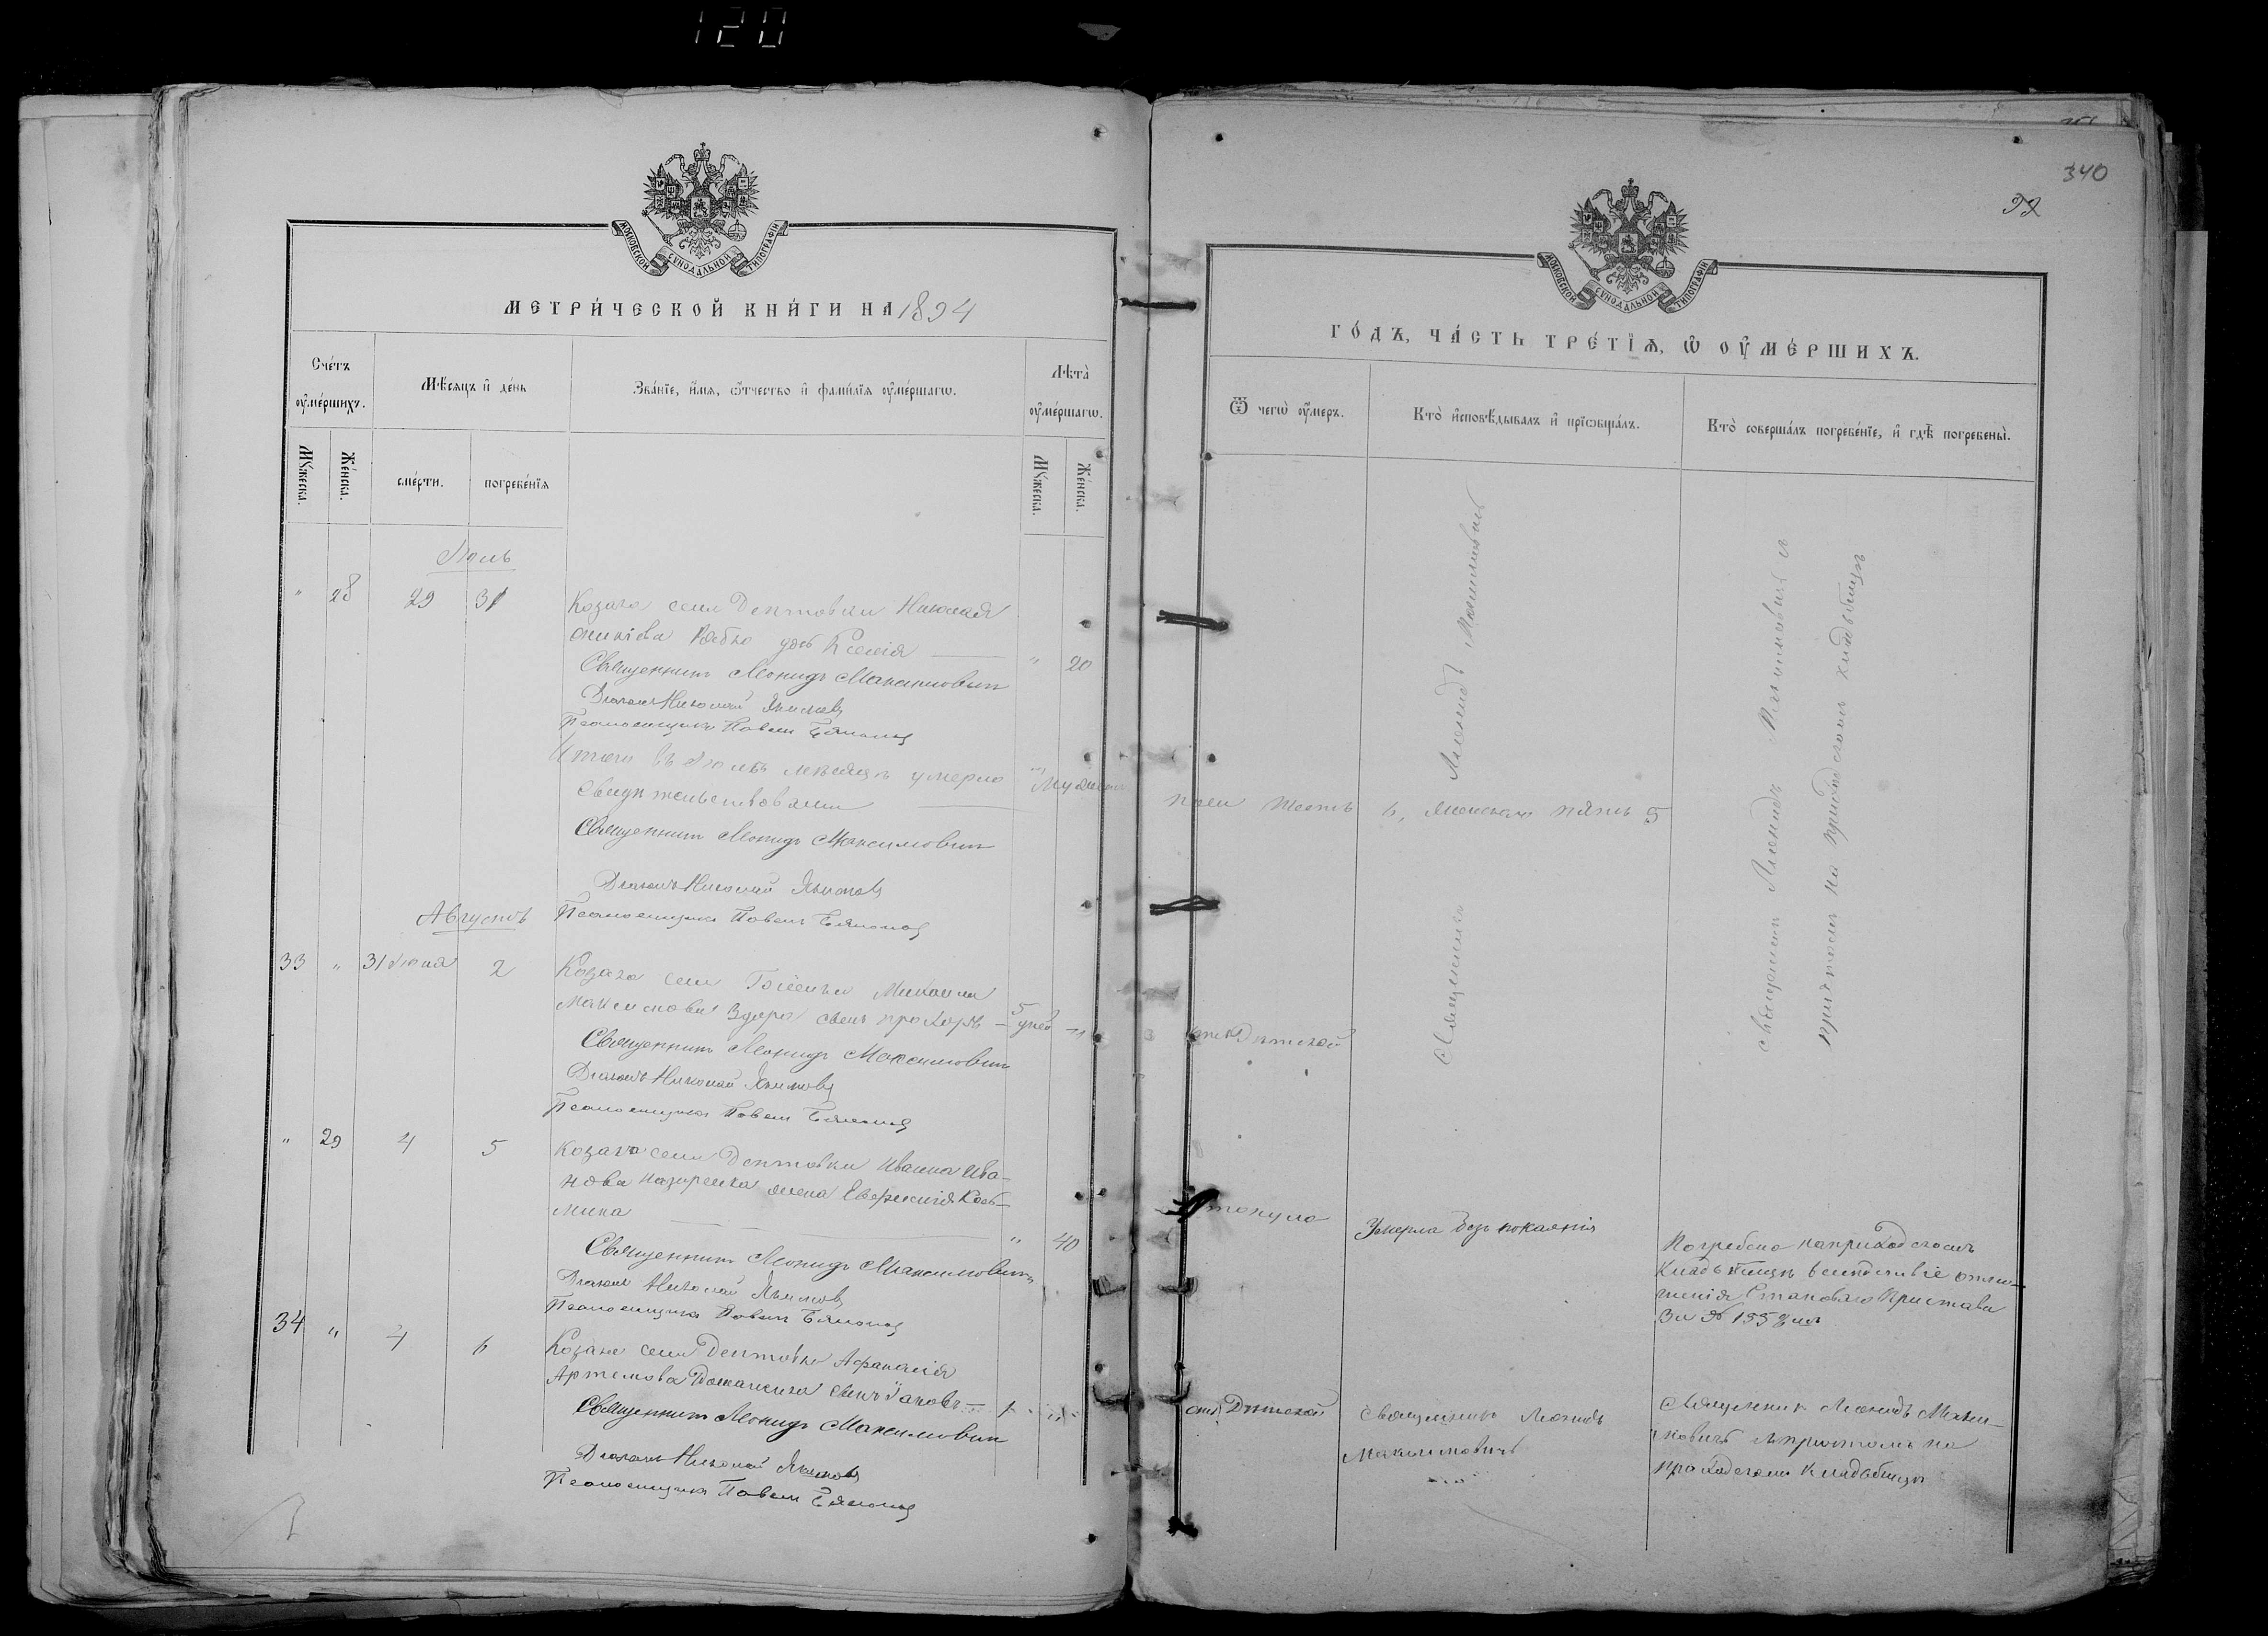 120
340
МОСКОВСКОЙ СѴНОДАЛЬНОЙ ТИПОГРАФІИ
МЕТРИ́ЧЕСКОЙ КНИ́ГИ НА 1894
Сче́тъ ᲂу҆ме́ршихъ.
Мѣ́сѧцъ и҆ де́нь
Зва́нїе, и҆́мѧ, ѻ҆́тчество и҆ фами́лїѧ ᲂу҆ме́ршагѡ.
Лѣта̀ ᲂу҆ме́ршагѡ.
Мꙋ́жеска.
Же́нска.
сме́рти.
погребе́нїѧ
Мꙋ́жеска.
Же́нска.
Июль
" 28 29 31 Козака села Дептовки Николая
Рябко дочь Ксенія " 20
Священникъ Леонидъ Максимовичъ
Діаконъ Николай Якимовъ
Псаломщикъ Павелъ
Итого въ Іюлѣ мѣсяцѣ умерло
Священникъ Леонидъ Максимовичъ
Діаконъ Николай Якимовъ
Псаломщикъ Павелъ
Августъ
33 " 31 Июля 2 Козака села Михаила
Максимова сынъ Прохоръ 5 дней "
Священникъ Леонидъ Максимовичъ
Діаконъ Николай Якимовъ
Псаломщикъ Павелъ
" 29 4 5 Козака села Дептовки Ивана Ива-
нова Назаренка жена Евфимія Козь-
мина " 40
Священникъ Леонидъ Максимовичъ
Діаконъ Николай Якимовъ
Псаломщикъ Павелъ
34 " 4 6 Козака села Дептовки Афанасія
Артемова сынъ Іаковъ 1 "
Священникъ Леонидъ Максимовичъ
Діаконъ Николай Якимовъ
Псаломщикъ Павелъ
МОСКОВСКОЙ СѴНОДАЛЬНОЙ ТИПОГРАФІИ
ГО́ДЪ, ЧА́СТЬ ТРЕ́ТЇѦ, Ѡ҆ ОУ҆МЕ́РШИХЪ.
Ѿ чегѡ̀ ᲂу҆́меръ.
Кто̀ и҆сповѣ́дывалъ и҆ прїѡбща́лъ.
Кто̀ соверша́лъ погребе́нїе, и҆ гдѣ̀ погребены̀.
Священникъ Леонидъ Максимовичъ
Священникъ Леонидъ Максимовичъ съ
причтомъ на приходскомъ кладбищѣ
шесть 6, женскаго пять 5
Дѣтской
утонула
Умерла безъ покаянія
Погребена на приходскомъ
кладбищѣ вслѣдствіе отно-
шенія Становаго Пристава
За №
отъ Дѣтской
Священникъ Леонидъ
Максимовичъ
Священникъ Леонидъ Макси-
мовичъ съ причтомъ на
приходскомъ кладбищѣ